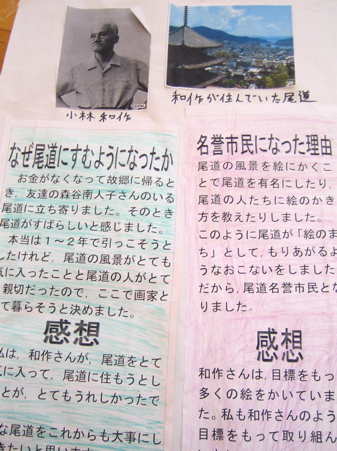 小林 和作
和作が住んでいた尾道
なぜ尾道にすむようになったか
お金がなくなって故郷に帰ると
き、友達の森谷南人子さんのいる
尾道に立ち寄りました。そのとき
尾道がすばらしいと感じました。
本当は１～２年で引っこそうと
したけれど、尾道の風景がとても
気に入ったことと尾道の人がとて
も親切だったので、ここで画家と
して暮らそうと決めました。
感想
私は、和作さんが、尾道をとて
気に入って、尾道に住もうとし
ことが、とてもうれしかったで
な尾道をこれからも大事にし
きたいと思います
名誉市民になった理由
尾道の風景を絵にかくこ
とで尾道を有名にしたり、
尾道の人たちに絵のかき
方を教えたりしました。
このように尾道が「絵のま
ち」として、もりあがるよ
うなおこないをしました
だから、尾道名誉市民とな
りました。
感想
和作さんは、目標をもっ
多くの絵をかいていま
た。私も和作さんのよう
目標をもって取り組ん